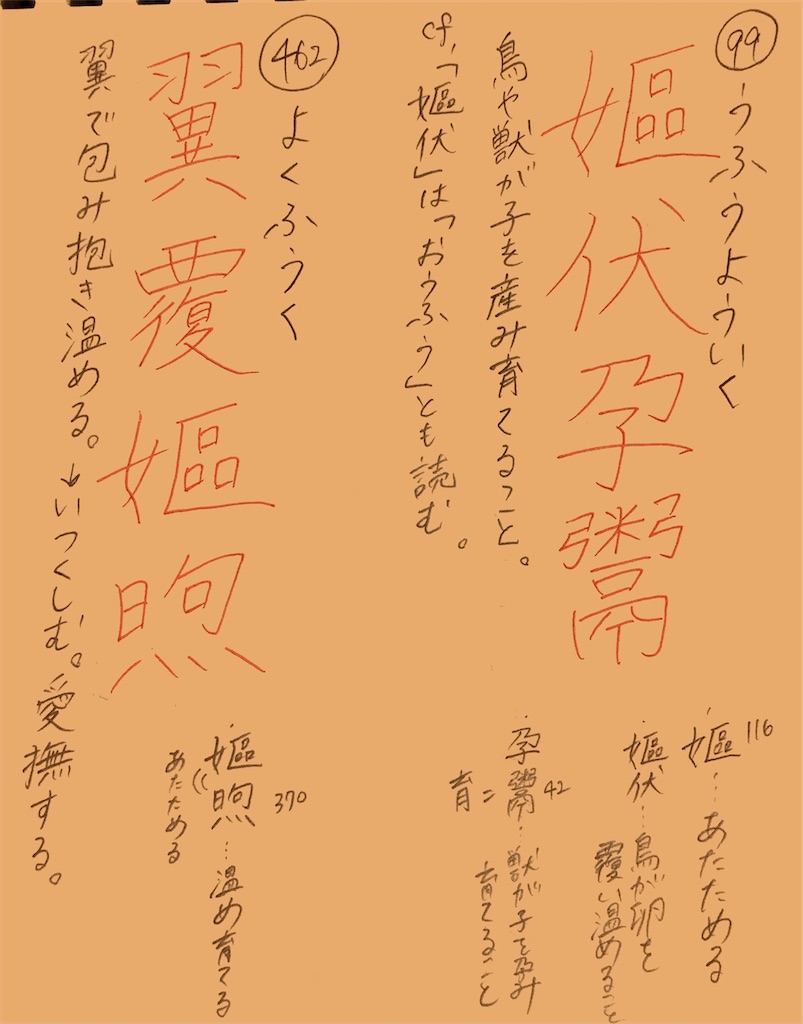 99
うふうよういく
嫗伏孕鬻
鳥や獣が子を産み育てること。
cf.「嫗伏」は「おうふう」とも読む。
嫗…あたためる
116
嫗伏…鳥が卵を
覆い温めること
孕鬻…獣が子を孕み
42
育てること
育
462
よくふうく
翼覆嫗煦
翼で包み抱き温める。→いつくしむ。愛撫する。
嫗煦…温め育てる
370
あたためる